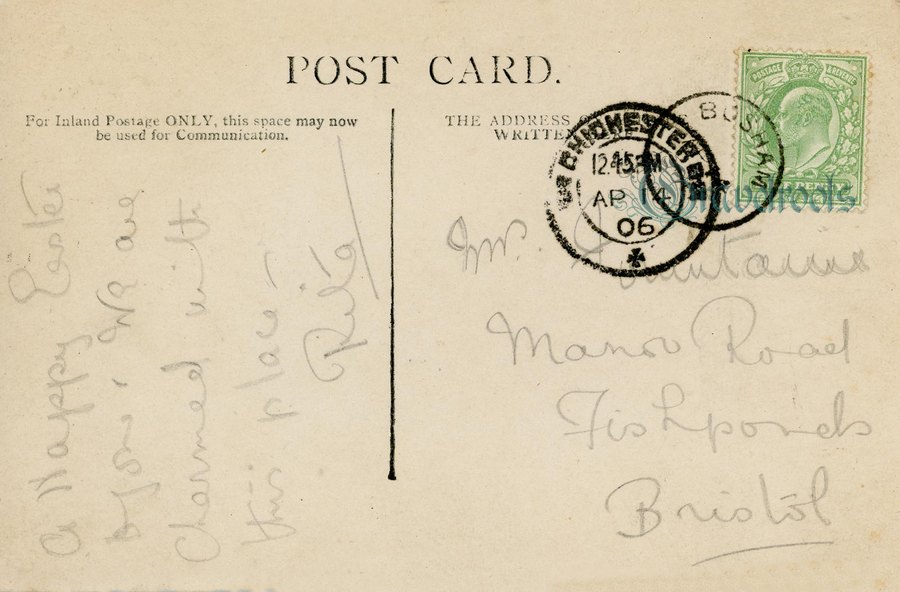 POST CARD.
For Inland Postage ONLY, this space may now
be used for Communication.
THE ADDRESS
WRITTEN
CHICHESTER
12.15PM
AP 14
06
BOSHAM
POSTAGE & REVENUE
A Happy Easter
to you. We are
charmed with
this place -
Rita
Mr. Fountaine
Manor Road
Fishponds
Bristol